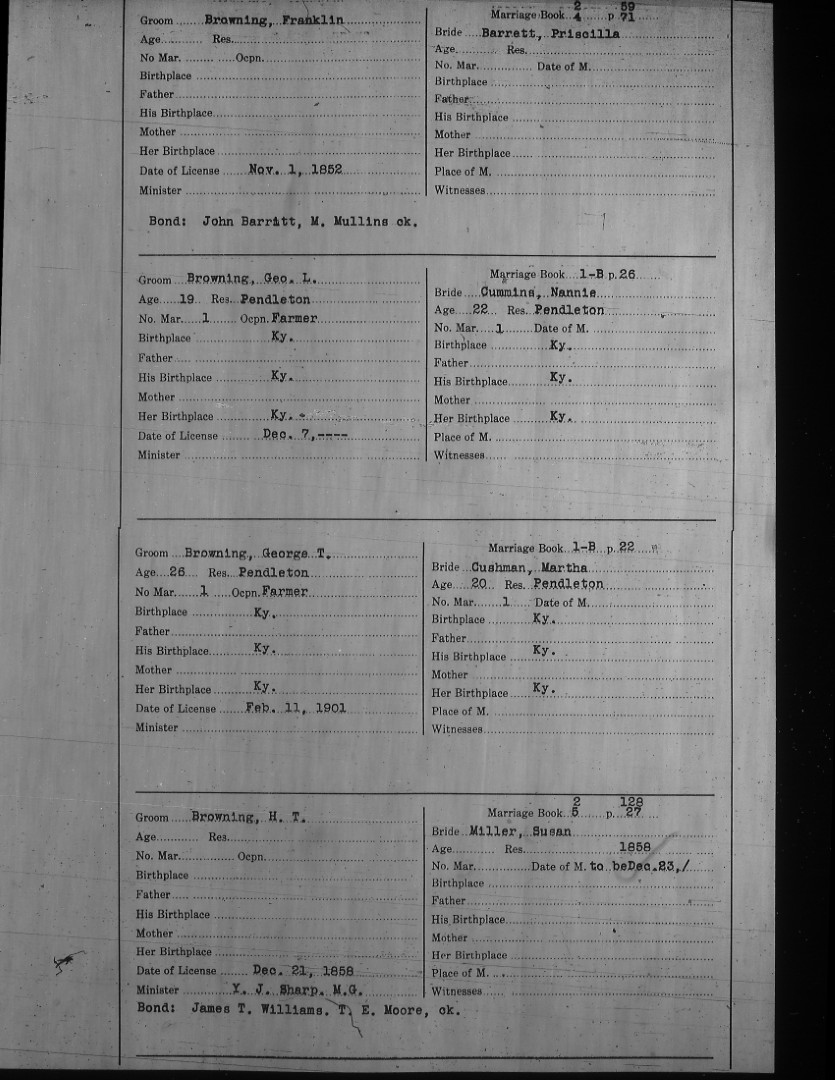 Groom Browning, Franklin
Age Res.
No Mar. Ocpn.
Birthplace
Father
His Birthplace
Mother
Her Birthplace
Date of License Nov. 1, 1852
Minister
2 59
Marriage Book 4 p 71
Bride Barrett, Priscilla
Age Res.
No. Mar. Date of M.
Birthplace
Father
His Birthplace
Mother
Her Birthplace
Place of M.
Witnesses
Bond: John Barritt, M. Mullins ok.
Groom Browning, Geo. L.
Age 19 Res. Pendleton
No. Mar. 1 Ocpn. Farmer
Birthplace Ky.
Father
His Birthplace Ky.
Mother
Her Birthplace Ky.
Date of License Dec. 7,----
Minister
Marriage Book 1-B p. 26
Bride Cummins, Nannie
Age 22 Res. Pendleton
No. Mar. 1 Date of M.
Birthplace Ky.
Father
His Birthplace Ky.
Mother
Her Birthplace Ky.
Place of M.
Witnesses
Groom Browning, George T.
Age 26 Res. Pendleton
No Mar. 1 Ocpn. Farmer
Birthplace Ky.
Father
His Birthplace Ky.
Mother
Her Birthplace Ky.
Date of License Feb. 11, 1901
Minister
Marriage Book 1-B p. 22
Bride Cushman, Martha
Age 20 Res. Pendleton
No. Mar. 1 Date of M.
Birthplace Ky.
Father
His Birthplace Ky.
Mother
Her Birthplace Ky.
Place of M.
Witnesses
Groom Browning, H. T.
Age Res.
No. Mar. Ocpn.
Birthplace
Father
His Birthplace
Mother
Her Birthplace
Date of License Dec. 21, 1858
Minister Y. J. Sharp. M.G.
2 128
Marriage Book 5 p. 27
Bride Miller, Susan
Age Res. 1858
No. Mar. Date of M. to beDec.23,/
Birthplace
Father
His Birthplace
Mother
Her Birthplace
Place of M.
Witnesses
Bond: James T. Williams. T. E. Moore, ok.